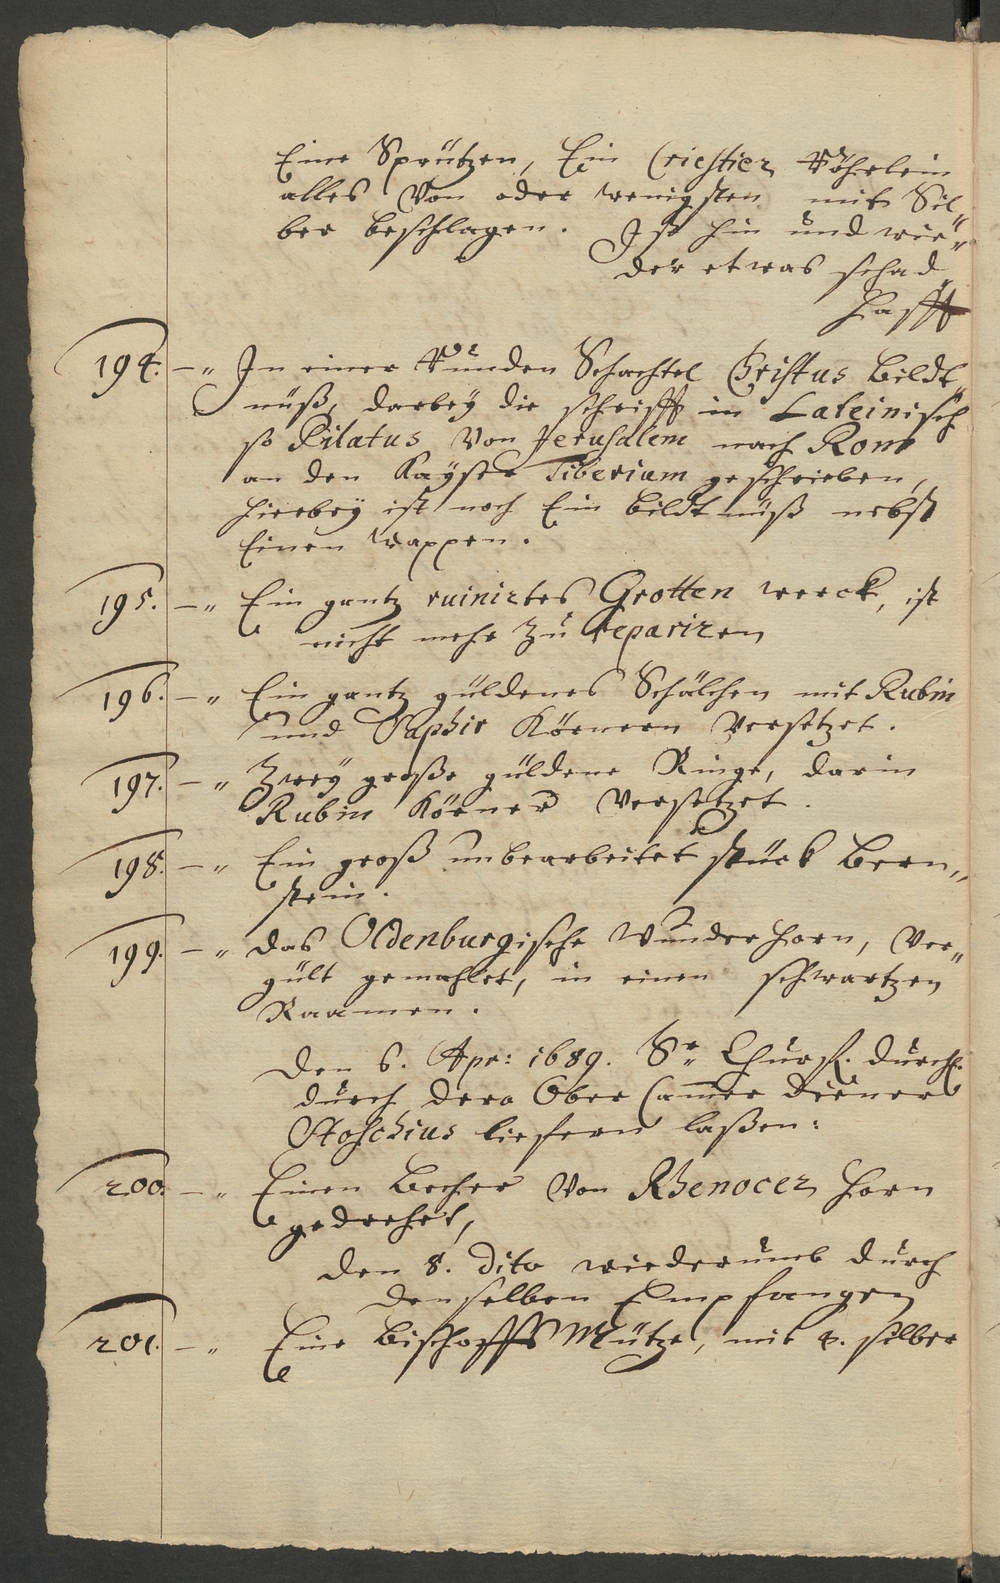 Eine Sprützen, Ein Cristier Röhrlein
alles Von oder wenigsten mit Sil„
ber beschlagen. Ist hin und wie„
der etwas schad„
hafft
194. —„ In einer Runden Schachtel Christus bildt„
nüß, darbey die schrifft in Lateinisch
so Pilatus Von Jerusalem nach Rom
an den Kaÿser Tiberium geschrieben,
hierbey ist noch Ein bildtnüß nebst
Einen Wappen.
195. —„ Ein gantz ruinirtes Grotten werck, ist
nicht mehr Zu repariren
196. —„ Ein gantz güldenes Schälchen mit Rubin
und Saphir Körnern Versetzet.
197. —„ Zweÿ große güldene Ringe, darin
Rubin Körner Versetzet.
198. —„ Ein groß unbearbeitet stück Bern„
stein.
199. —„ Das Oldenburgische Wunderhorn, Ver„
gült gemahlet, in einen schwartzen
Raamen.
Den 6. Apr: 1689. Sr. Churf. Durchl.
durch dero Ober Cammer diener
Stoschius liefern laßen:
200. —„ Einen Becher Von Rhenocer horn
gedrehet,
Den 8. dito wiederumb durch
denselben Empfangen
201. —„ Eine Bischoffs Mütze, mit 4. silber